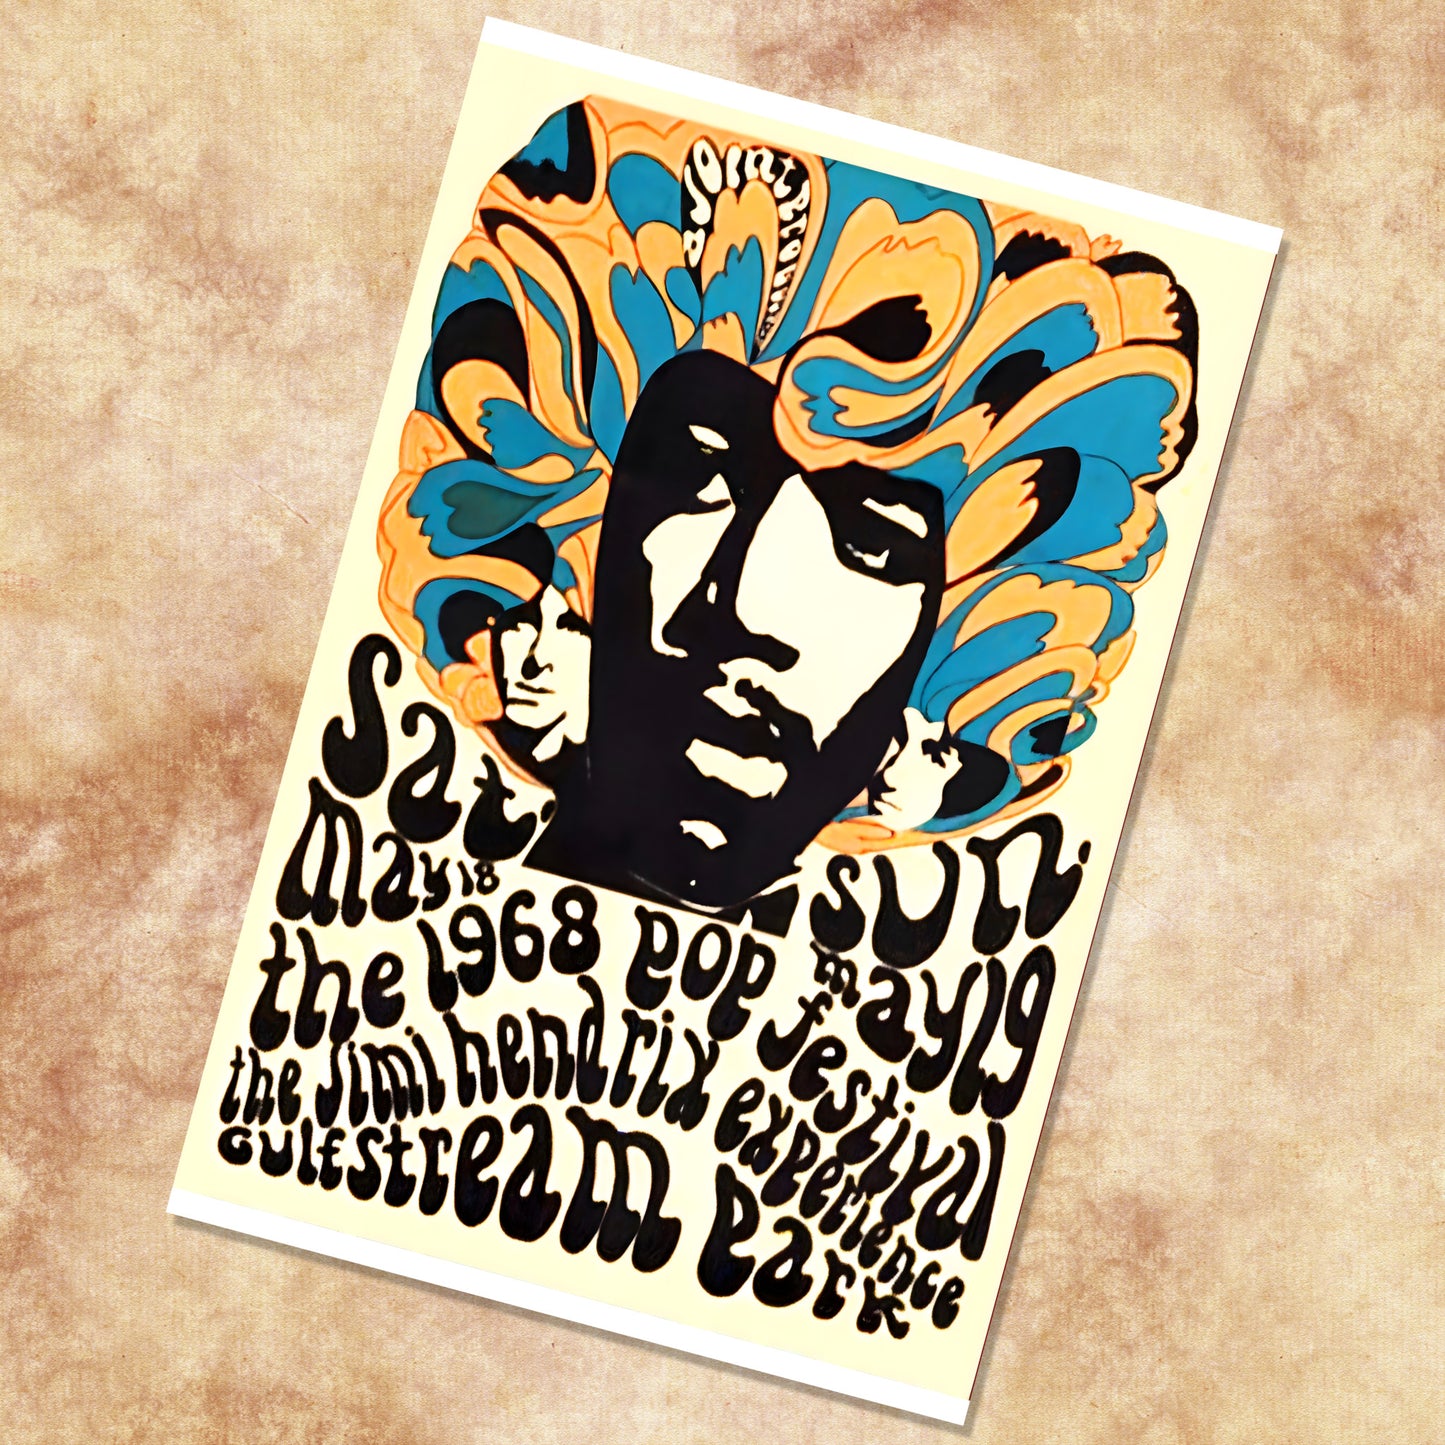 a joint production
Sat.
May 18
Sun.
May 19
the 1968 pop festival
the Jimi hendrix experience
Gulfstream park